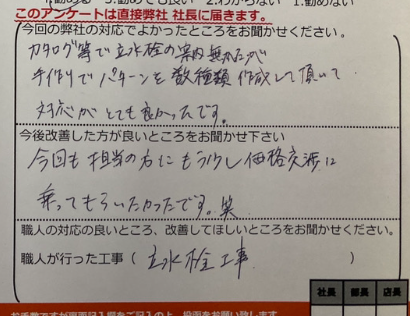 このアンケートは直接弊社 社長に届きます。
今回の弊社の対応でよかったところをお聞かせください。
カタログ等で立水栓の案内無かったが
手作りでパターンを数種類作成して頂いて
対応がとても良かったです。
今後改善した方が良いところをお聞かせ下さい
今回も担当の方にもう少し価格交渉に
乗ってもらいたかったです。笑
職人の対応の良いところ、改善してほしいところをお聞かせください。
職人が行った工事( 立水栓工事 )
社長 部長 店長